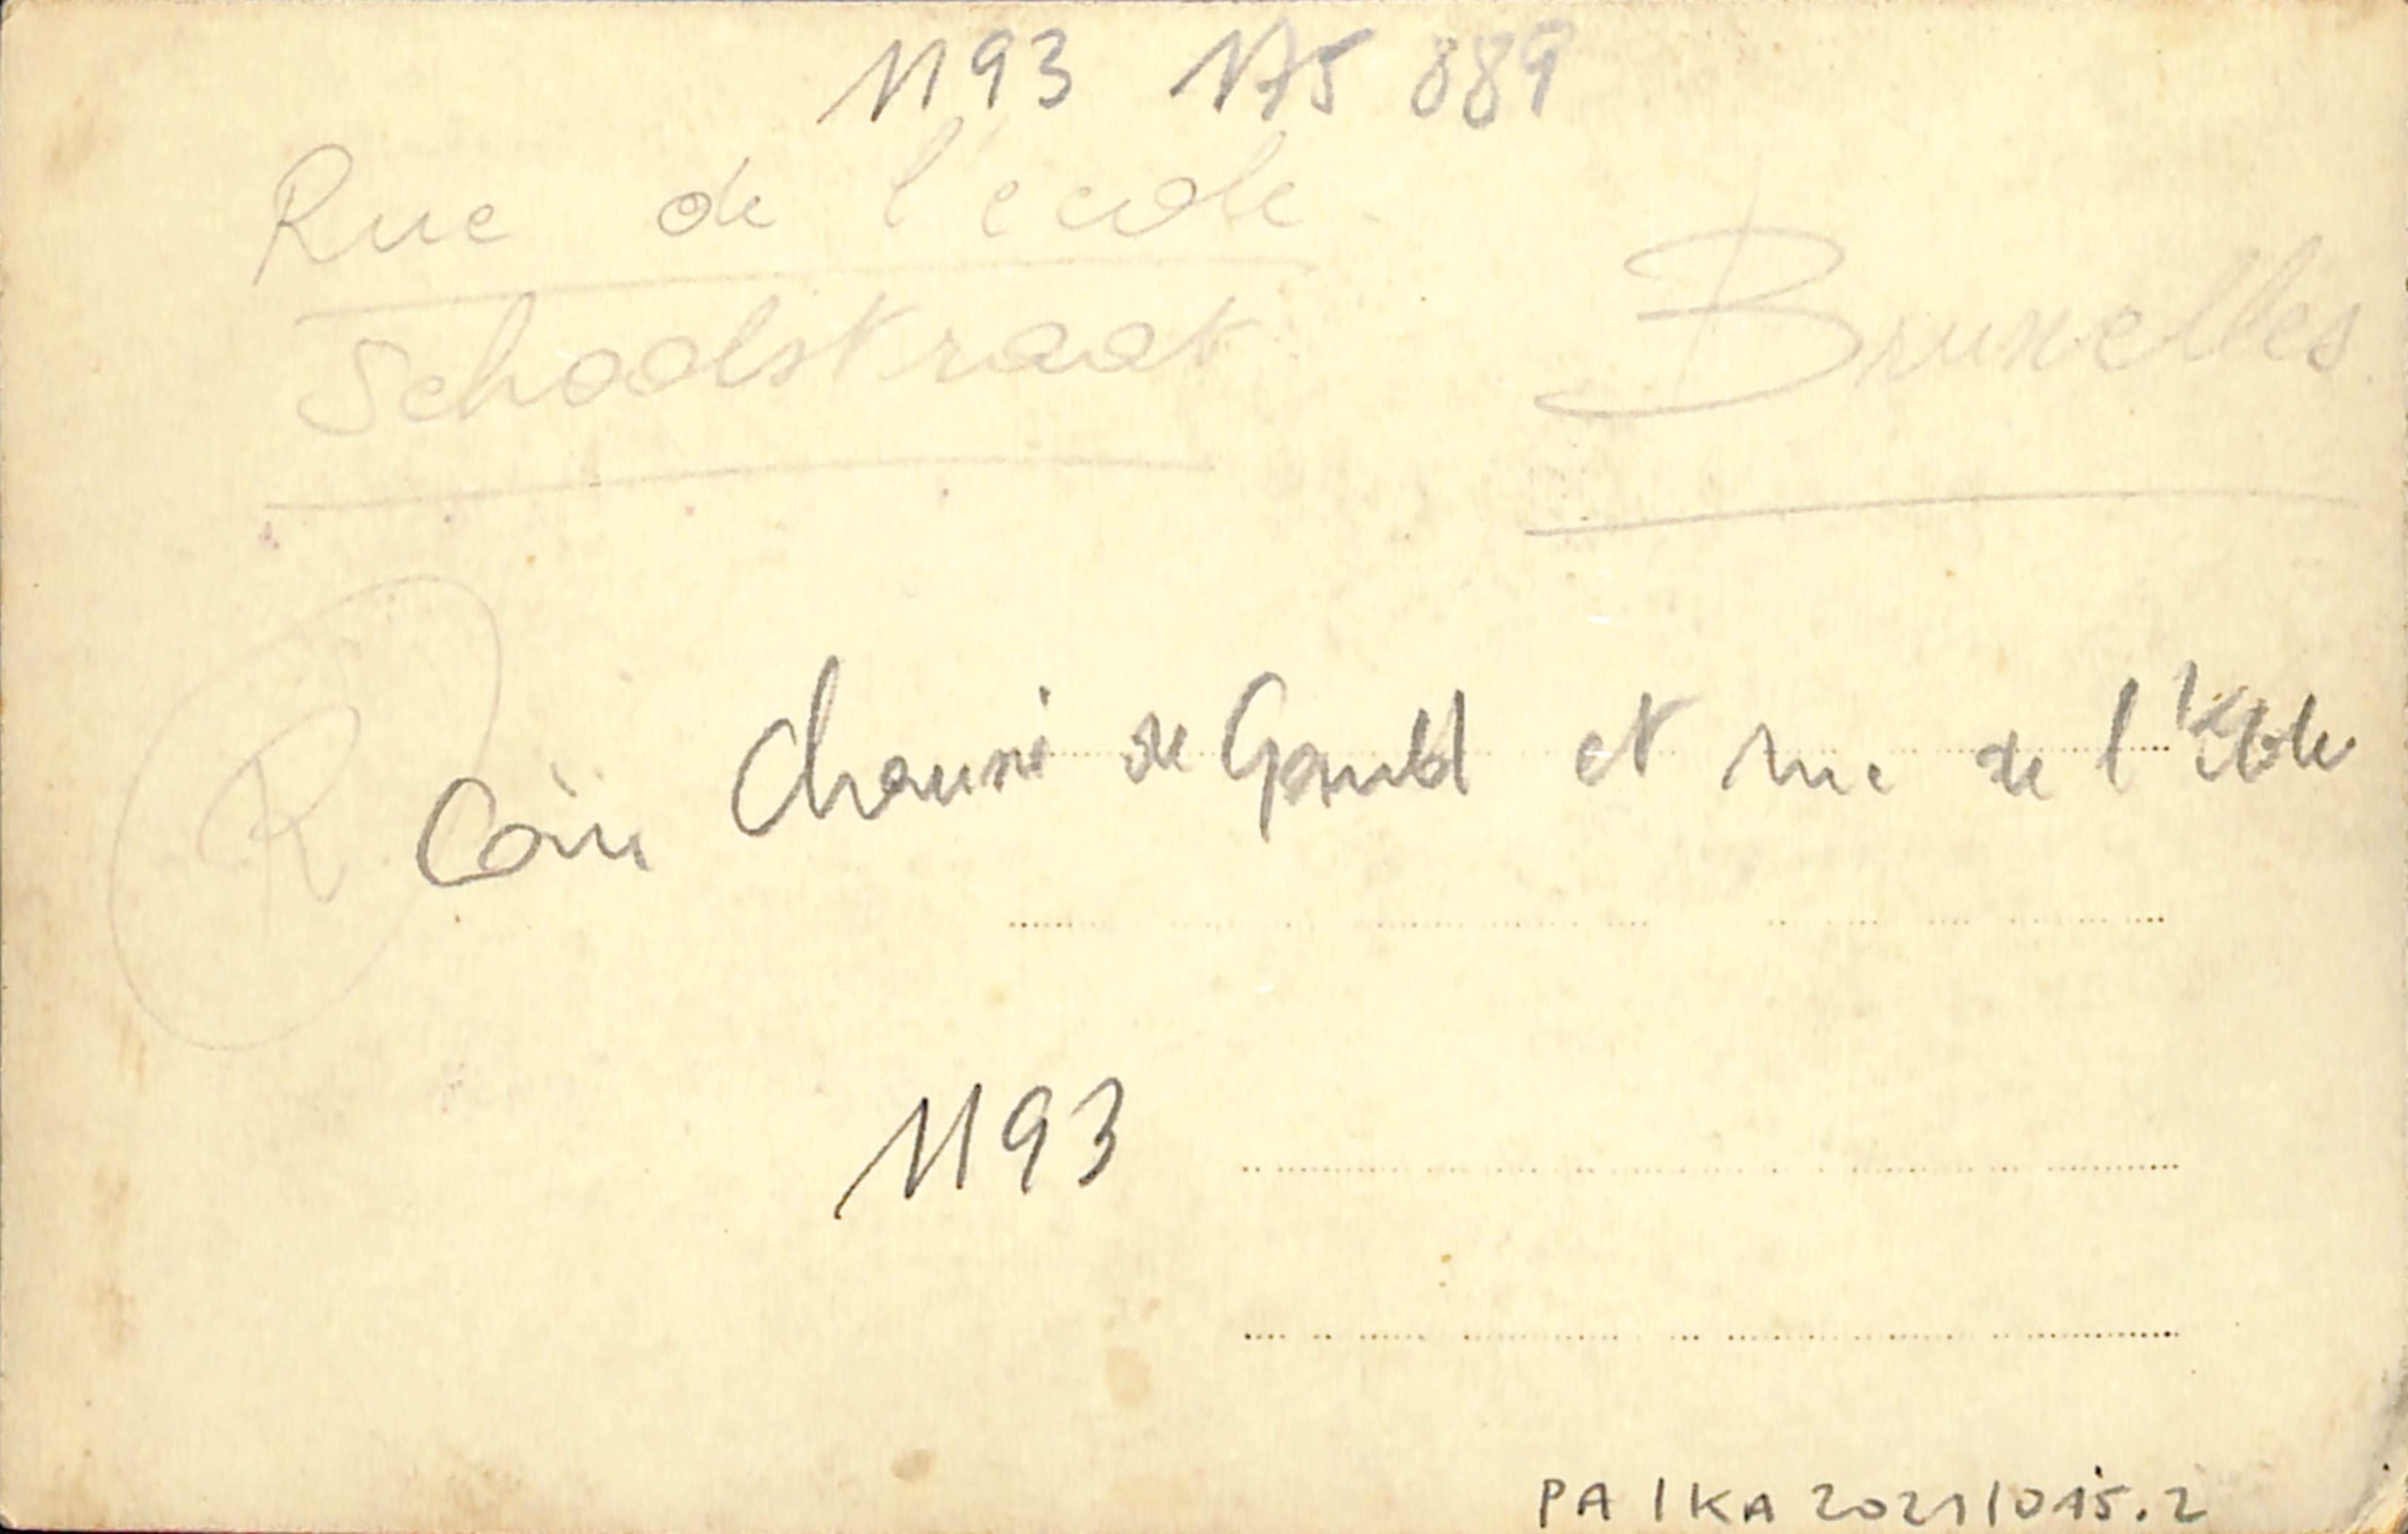 1193 175 889
Rue de l'école
Schoolstraat
Bruxelles
R
Coin Chaussé de Gand et rue de l'École
1193
PA/KA 2021/015.2